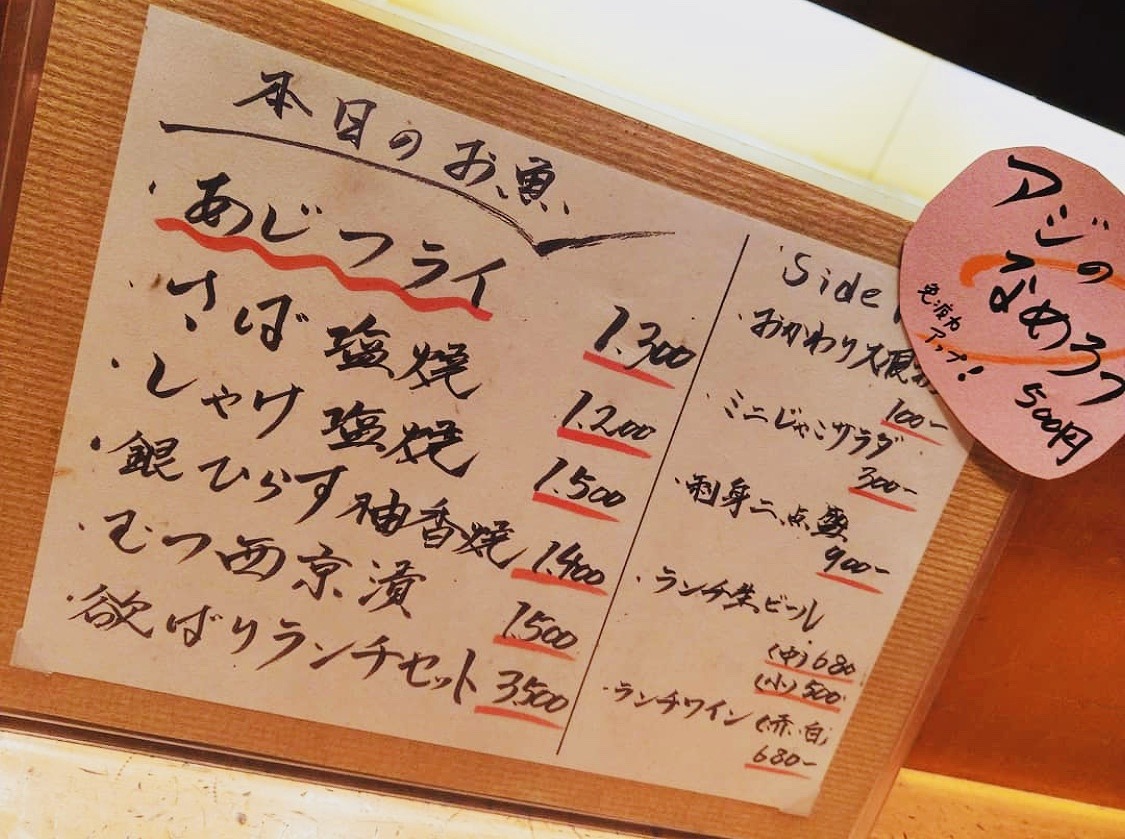 本日のお魚
・あじフライ 1.300
・さば塩焼 1.200
・しゃけ塩焼 1.500
・銀ひらす柚香焼 1.400
・むつ西京漬 1.500
・欲ばりランチセット 3.500
Side
・おかわり大根お
100-
・ミニじゃこサラダ
300-
・刺身二点盛
900-
・ランチ生ビール
(中) 680
(小) 500
・ランチワイン (赤・白)
680-
アジの
なめろう
免疫力
アップ!
500円